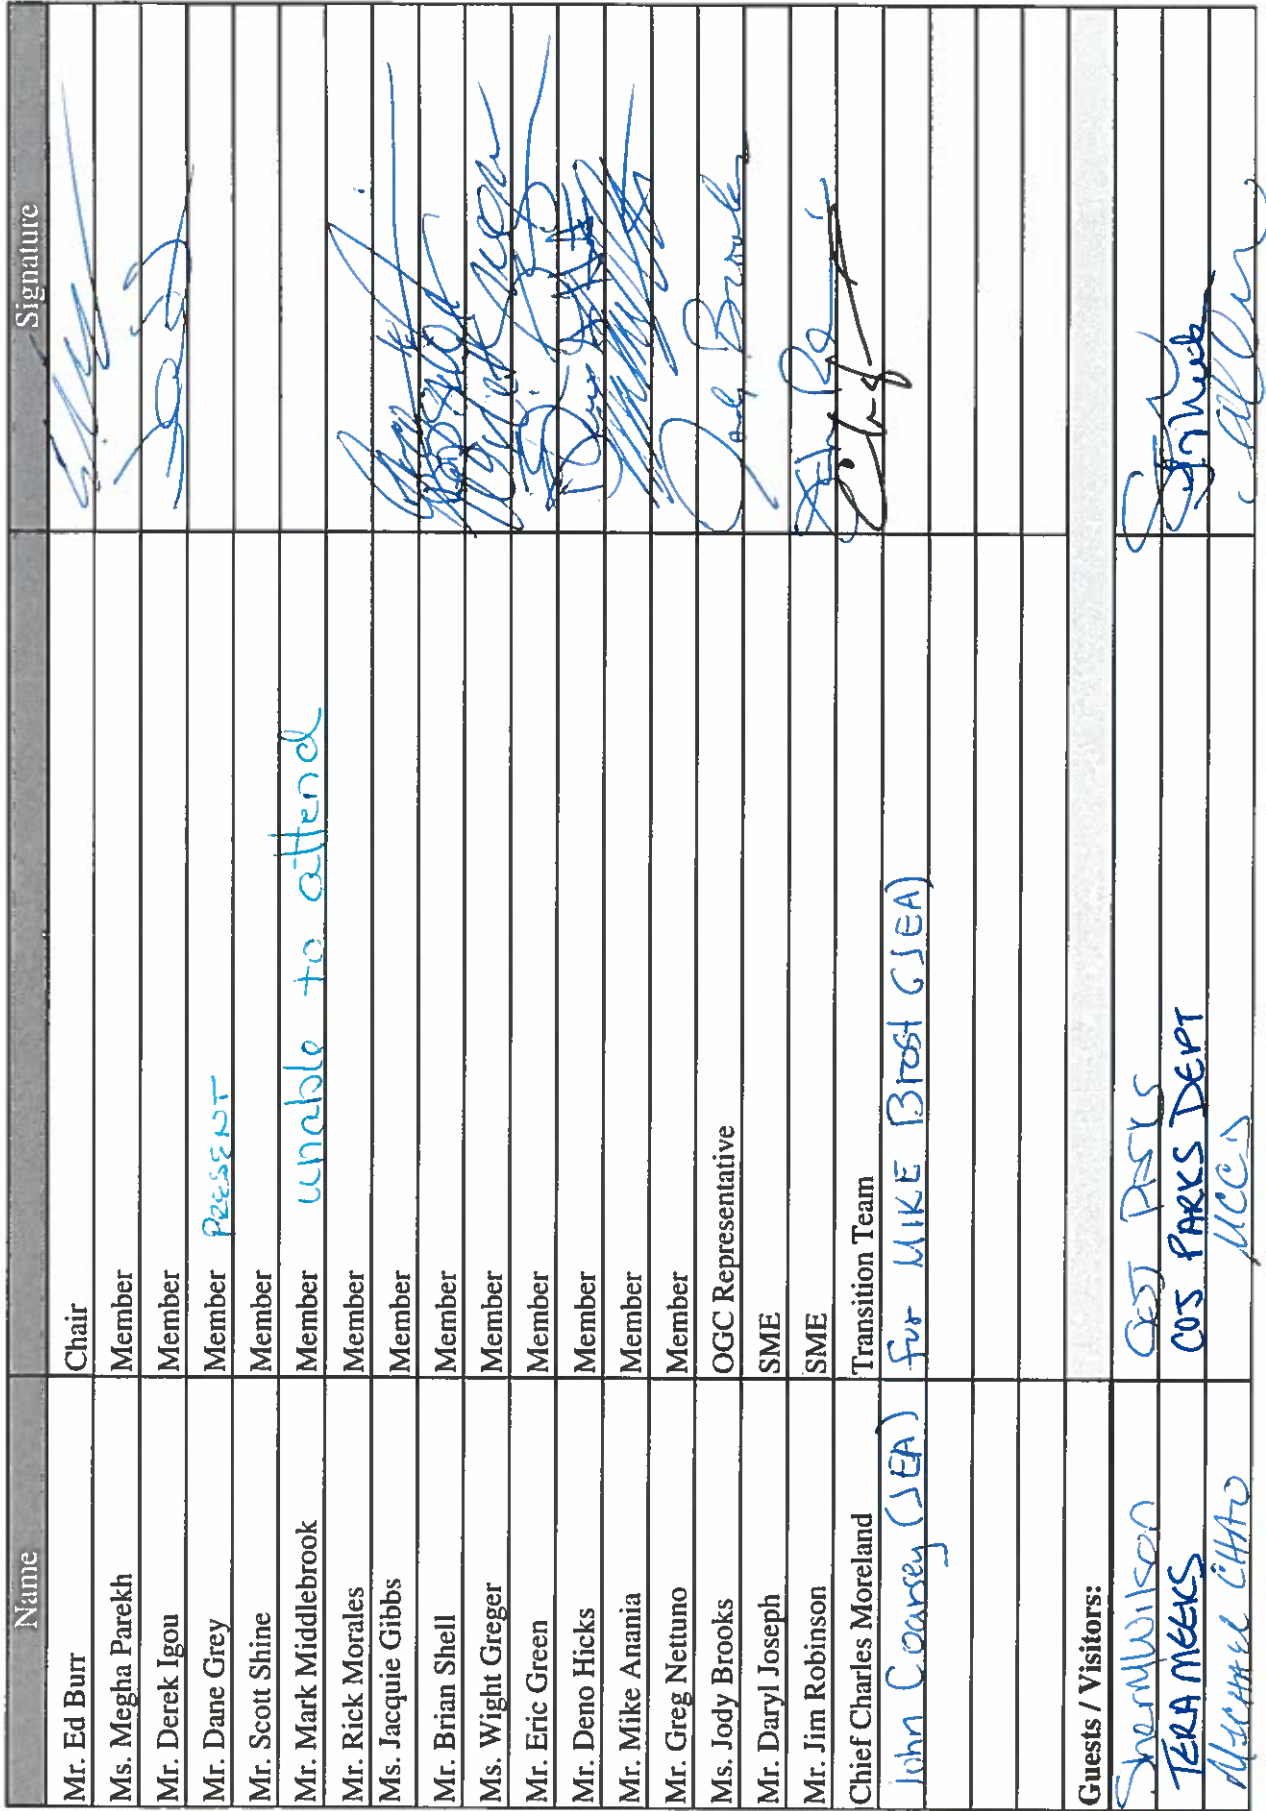 Name Signature
Mr. Ed Burr Chair
Ms. Megha Parekh Member
Mr. Derek Igou Member
Mr. Dane Grey Member PRESENT
Mr. Scott Shine Member
Mr. Mark Middlebrook Member unable to attend
Mr. Rick Morales Member
Ms. Jacquie Gibbs Member
Mr. Brian Shell Member
Ms. Wight Greger Member
Mr. Eric Green Member
Mr. Deno Hicks Member
Mr. Mike Anania Member
Mr. Greg Nettuno Member
Ms. Jody Brooks OGC Representative Jody Brooks
Mr. Daryl Joseph SME
Mr. Jim Robinson SME
Chief Charles Moreland Transition Team
John Coarsey (JEA) for MIKE Brost (JEA)
Guests / Visitors:
Sherry Wilson COJ
TERA MEEKS COJ PARKS DEPT
MICHAEL